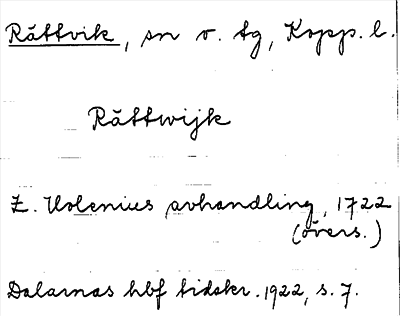 Rättvik, sn o. tg, Kopp. l.
Rättwijk
Z. Uolenius avhandling, 1722
(övers.)
Dalarnas hbf tidskr. 1922, s. 7.